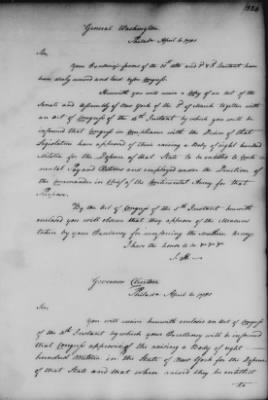 General Washington
Philada April 6 1781
Sir,
Your Excellency's favors of the 31st Ulto and & Instant have
been duly received and laid before Congress.
Herewith you will receive a Copy of an Act of the
Senate and Assembly of New York of the of March together with
an Act of Congress of the 4th Instant by which you will be
informed that Congress in Compliance with the Desire of that
Legislature have approved of their raising a Body of eight hundred
Militia for the Defence of that State to be entitled to Conti-
nental Pay and Rations and employed under the Direction of
the Commander in Chief of the Continental Army for that
Purpose.
By the Act of Congress of the 5th Instant herewith
enclosed you will observe that they approve of the Measures
taken by your Excellency for reinforcing the Southern Army
I have the honor to be &c &c
S. H.
Governor Clinton
Philada April 6 1781
Sir,
You will receive herewith enclosed an Act of Congress
of the 4th Instant by which your Excellency will be informed
that Congress approve of the raising a Body of eight
hundred Militia in the State of New York for the Defence
of that State and that when raised they be entitled
to